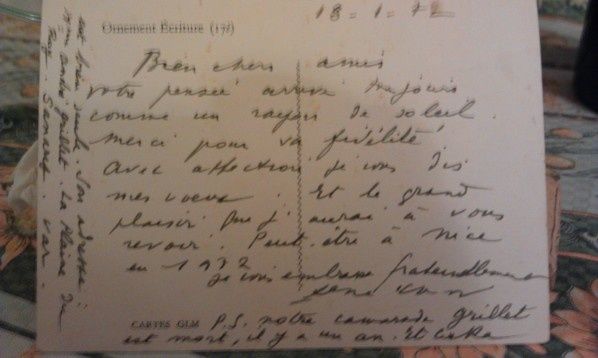 18-1-72
Ornement Écriture (17f)
Bien chers amis
votre pensée arrive toujours
comme un rayon de soleil.
Merci pour la fidélité
Avec affection je vous dis
mes voeux. Et le grand
plaisir que j'aurai à vous
revoir. Peut-être à Nice
en 1972
je vous embrasse fraternellement
CARTES GLM
P.S. notre camarade grillet
est mort, il y a un an. Et
est bien seule. Son adresse:
grillet. La Plaine du
Var.